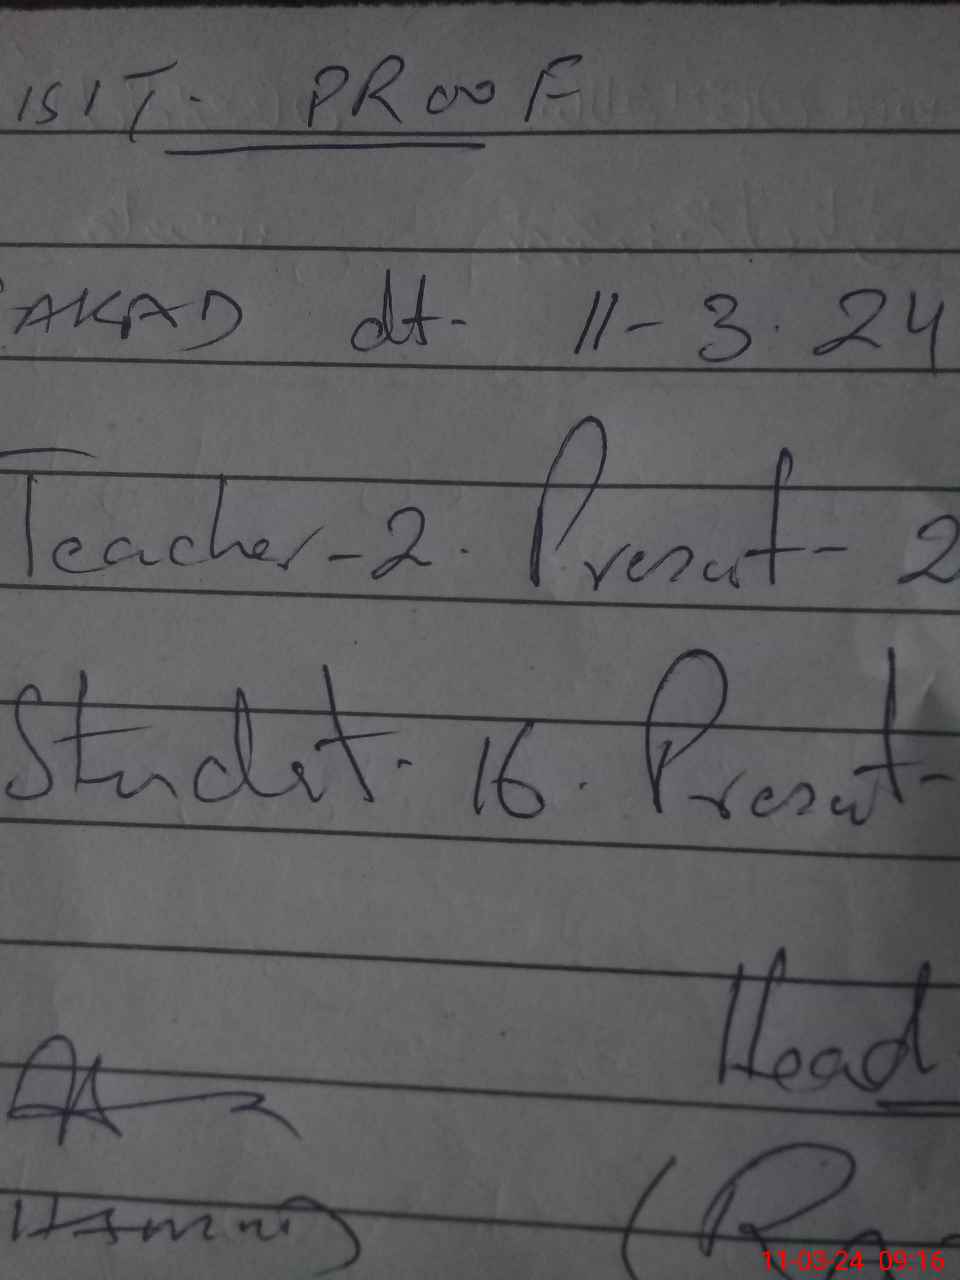 ISIT. PROOF
AKAD dt- 11-3.24
Teacher-2. Present- 2
Student. 16. Present-
Head
11-03-24 09:16